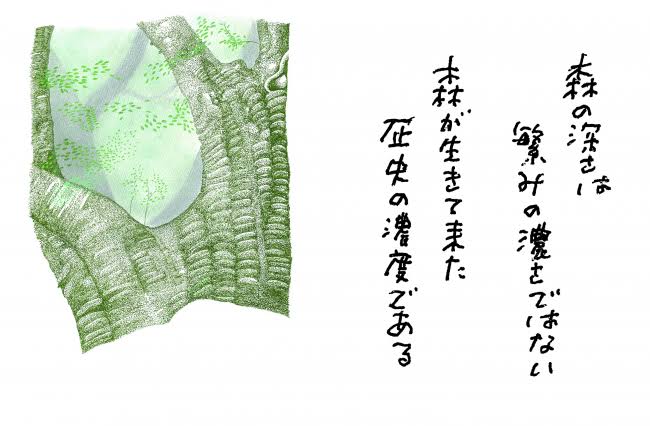 森の深さは
繁みの濃さではない
森が生きて来た
歴史の濃度である